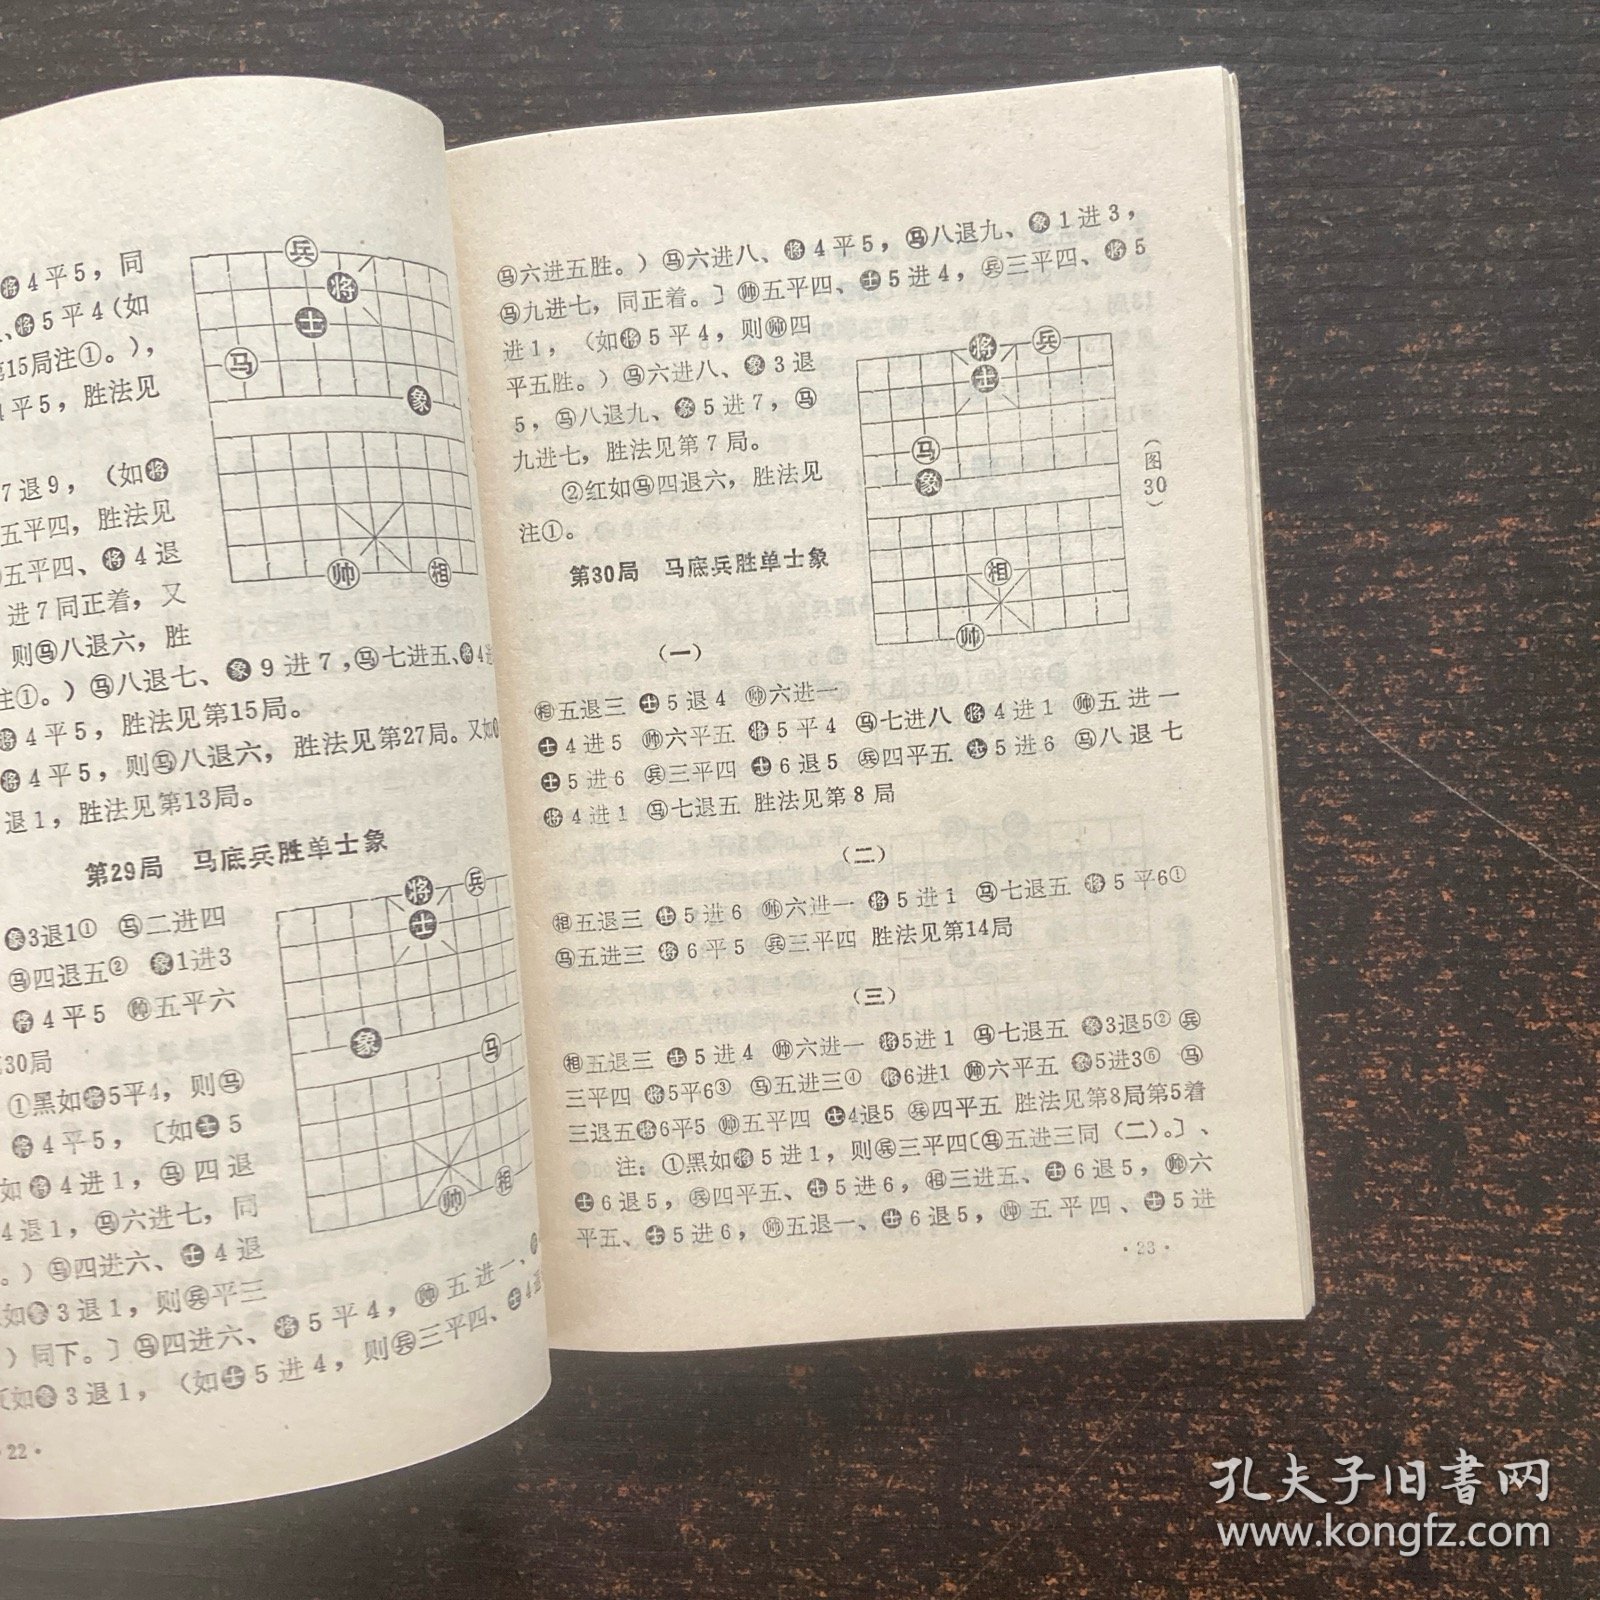 将4平5，同
、将5平4（如
第15局注①。），
4平5，胜法见
7退9，（如将
五平四，胜法见
五平四、将4退
进7同正着，又
则马八退六，胜
注①。）马八退七、象9进7，马七进五、将4进
将4平5，胜法见第15局。
将4平5，则马八退六，胜法见第27局。又如
退1，胜法见第13局。
兵
将
士
马
象
帅
相
第29局 马底兵胜单士象
象3退1① 马二进四
马四退五② 象1进3
将4平5 帅五平六
30局
①黑如将5平4，则马
将4平5，〔如士5
如将4进1，马四退
4退1，马六进七，同
。）马四进六、士4退
如象3退1，则兵平三
）同下。〕马四进六、将5平4，帅五进一、
如象3退1，（如士5进4，则兵三平四、士4
将
兵
士
象
马
相
帅
·22·
马六进五胜。）马六进八、将4平5，马八退九、象1进3，
马九进七，同正着。〕帅五平四、士5进4，兵三平四、将5
进1，（如将5平4，则帅四
平五胜。）马六进八、象3退
5，马八退九、象5进7，马
九进七，胜法见第7局。
②红如马四退六，胜法见
注①。
将
兵
士
马
象
相
帅
（图30）
第30局 马底兵胜单士象
（一）
相五退三 士5退4 帅六进一
士4进5 帅六平五 将5平4 马七进八 将4进1 帅五进一
士5进6 兵三平四 士6退5 兵四平五 士5进6 马八退七
将4进1 马七退五 胜法见第8局
（二）
相五退三 士5进6 帅六进一 将5进1 马七退五 将5平6①
马五进三 将6平5 兵三平四 胜法见第14局
（三）
相五退三 士5进4 帅六进一 将5进1 马七退五 象3退5② 兵
三平四 将5平6③ 马五进三④ 将6进1 帅六平五 象5进3⑥ 马
三退五 将6平5 帅五平四 士4退5 兵四平五 胜法见第8局第5着
注：①黑如将5进1，则兵三平四〔马五进三同（二）。〕、
士6退5，兵四平五、士5进6，相三进五、士6退5，帅六
平五、士5进6，帅五退一、士6退5，帅五平四、士5进
·23·
孔夫子旧书网
www.kongfz.com